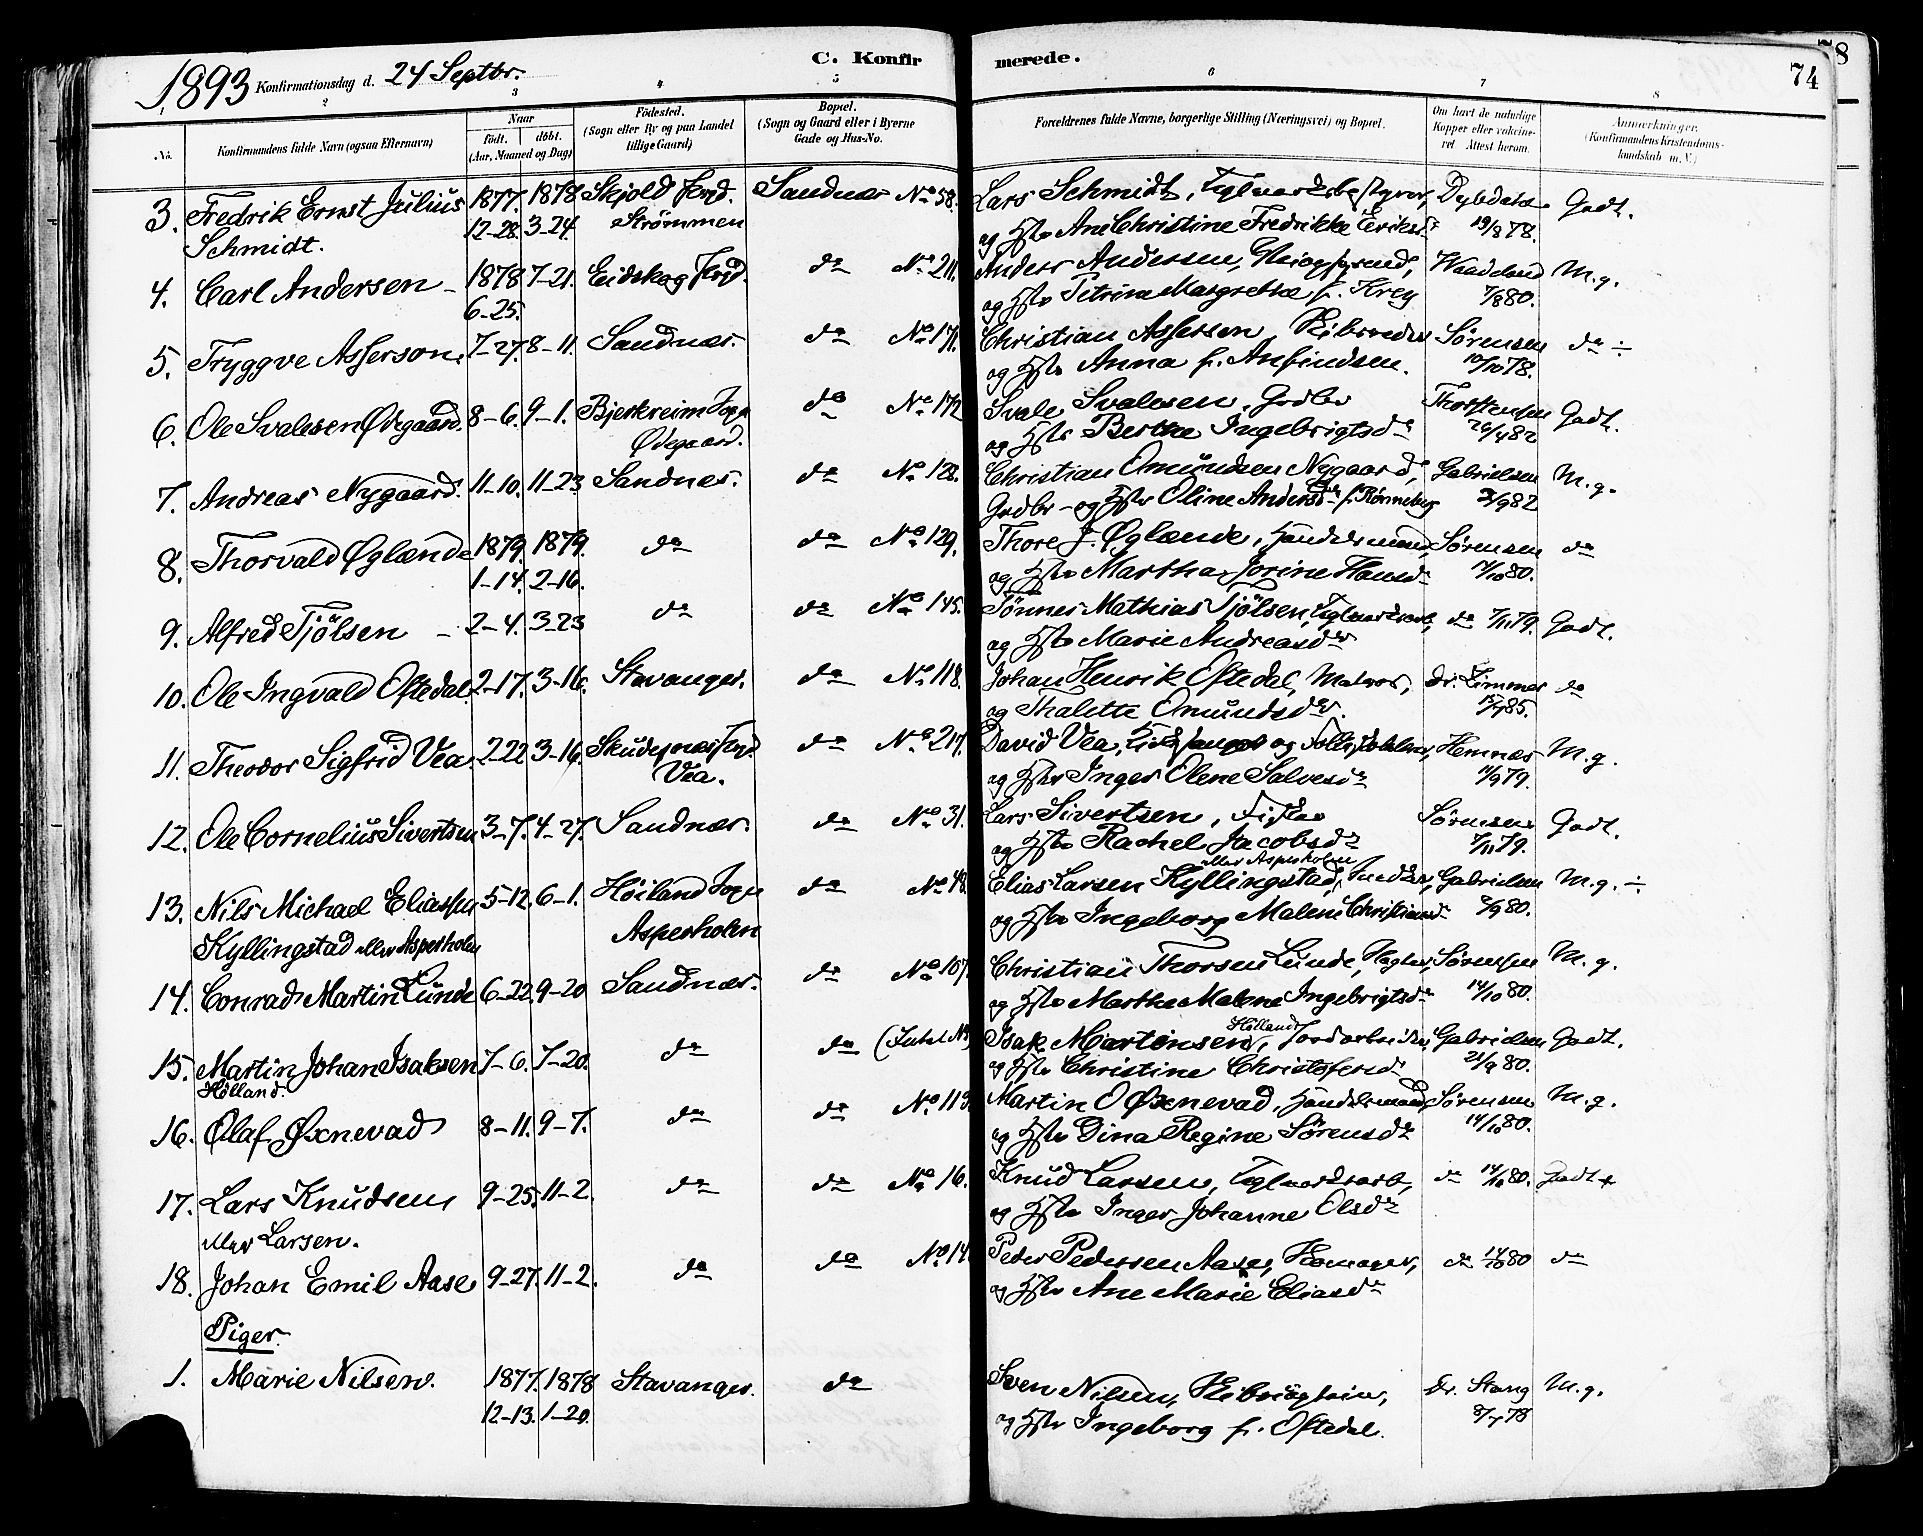 C. Konfirmerede.
74
78
1893 Konfirmationsdag d. 24 Septbr.
1 2 3 4 5 6 7 8
No.
Konfirmandens fulde Navn (ogsaa Efternavn)
Naar
født. døbt.
(Aar, Maaned og Dag)
Fødested.
(Sogn eller By og paa Landet
tillige Gaard)
Bopæl.
(Sogn og Gaard eller i Byerne
Gade og Hus-No.
Forældrenes fulde Navne, borgerlige Stilling (Næringsvei) og Bopæl.
Om havt de naturlige
Kopper eller vaksine-
ret. Attest herom.
Anmærkninger.
(Konfirmandens Kristendoms-
kundskab m. V.)
3. Fredrik Ernst Julius 1877. 1878 Skjold Sandnæs No 58. Lars Schmidt, Dybdahl Godt.
Schmidt. 12-28. 3-24. Strømmen og Ane Christine Fredrikke 19/8 78.
4. Carl Andersen 1878 7-21. Eidskog do No 211. Anders Andersen, Waadeland M.g.
6-25. og Petrine Margrethe f. Krey 7/8 80.
5. Tryggve Asserson. 7-27. 8-11. Sandnæs. do No 171. Christian Assersen, Sørensen do ÷
og Anna f. Anfindsen. 10/10 78.
6. Ole Svalesen Ødegaard. 8-6. 9-1. Bjerkreim Sogn do No 172 Svale Svalesen, Thorstensen Godt.
Ødegaard. og Berthe Ingebrigtsdr 26/4 82
7. Andreas Nygaard. 11-10. 11-23 Sandnæs. do No 128. Christian Omundsen Nygaard, Gabrielsen M.g.
og Oline Andersdr f. Rønneberg 82
8. Thorvald Øglænde 1879. 1879. do do No 129. Thore J. Øglænde, Handelsmand, Sørensen do
1-14. 2-16. og Martha Jorine Hansdr 14/10 80.
9. Alfred Tjölsen 2-4. 3-23 do do No 145. Tønnes Mathias Tjölsen, Teglværksarb, do 7/11 79. Godt.
og Marie Andreasdr
10. Ole Ingvald Oftedal. 2-17. 3-16. Stavanger. do No 118. Johan Henrik Oftedal, Matros, Dr. Zimmer do
og Thalette Omundsdr. 85.
11. Theodor Sigfrid Vea. 2-22 3-16. Skudesnæs do No 217. David Vea, og Hemnæs M.g.
Vea. og Inger Olene Salvesdr 11/9 79.
12. Ole Cornelius Sivertsen 3-7. 4-27. Sandnæs. do No 31. Lars Sivertsen, Fisker Sørensen Godt.
og Rachel Jacobsdr 7/11 79.
13. Nils Michael Eliassen 5-12. 6-1. Høiland Sogn do No 48. Elias Larsen Kyllingstad, eller Aspesholen Snedker, Gabrielsen M.g. ÷
Kyllingstad eller Aspesholen Aspesholen og Ingeborg Malene Christiansdr 80.
14. Conrad Martin Lunde 6-22. 9-20 Sandnæs. do No 107. Christian Thorsen Lunde, Sørensen M.g.
og Marthe Malene Ingebrigtsdr 14/10 80.
15. Martin Johan Isaksen 7-6. 7-20. do do Isak Martinsen, Hølland Jordarbeider, Gabrielsen Godt.
Hølland. og Christine Christofersdr 21/9 80.
16. Olaf Øxnevad 8-11. 9-7. do do No 113. Martin O Øxnevad, Handelsmand, Sørensen M.g.
og Gina Regine Sørensdr 14/10 80.
17. Lars Knudsen 9-25. 11-2. do do No 16. Knud Larsen, Teglværksarb, do 14/10 80. Godt +
eller Larsen. og Inger Johanne Olsdr
18. Johan Emil Aase 9-27. 11-2. do do No 14 Peder Pedersen Aase, do 14/10 80 do
og Ane Marie Eliasdr
Piger.
1. Marie Nilsen. 1877. 1878 Stavanger. do Sven Nilsen, Dr. Stang M.g.
12-13. 1-20. og Ingeborg f. Oftedal. 78